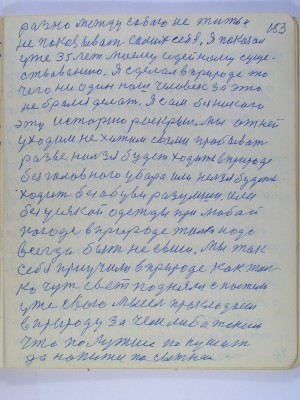 153
разно между собою не жить и
не показывать самих себя, Я показал
уже 35 лет моему идейному суще-
ствованию. Я сделал в природе то
чего ни один наш человек за это
не брался делать. Я сам
эту историю раскрыл. Мы от ней
уходим не хотим с ней пробывать
разве нельзя будет ходить в природе
без головного убора или нельзя будет
ходить без обувы разумши. или
без узкой одежды при любой
погоде в природе только надо
всегда быть не своим. Мы так
себя приучили в природе как толь-
ко чуть свет подняли с постели
уже свою мысль прокладаем
в природу за чем либо таким
что получше покушать
да напитки послаще